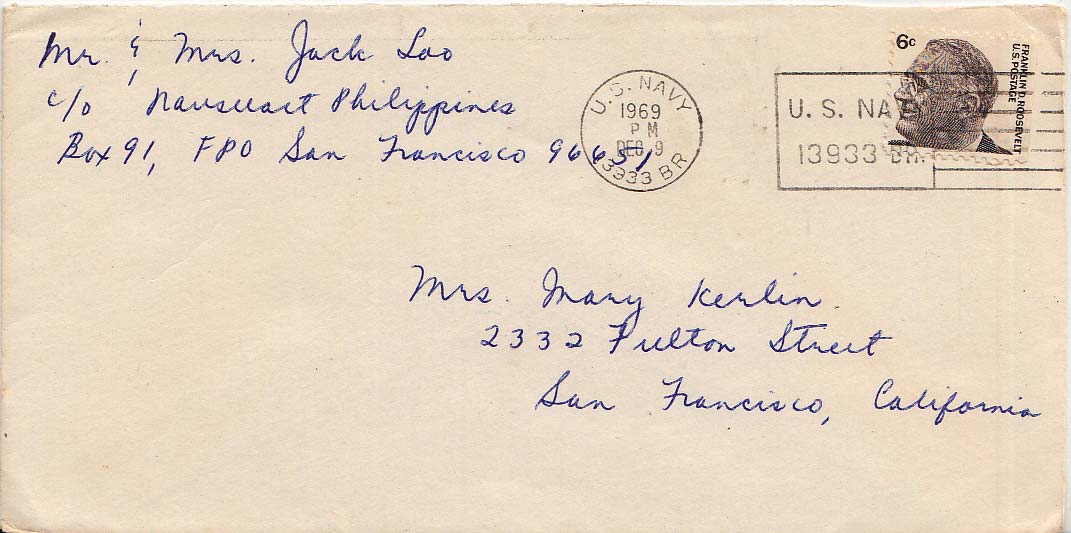 Mr. & Mrs. Jack Loo
c/o Philippines
Box 91, FPO San Francisco 96651
U.S. NAVY
1969
PM
DEC 9
13933 BR
U. S. NA
13933 BR
6c
FRANKLIN D. ROOSEVELT
U.S. POSTAGE
Mrs. Mary Kerlin
2332 Fulton Street
San Francisco, California